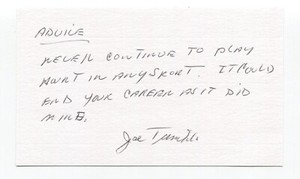 ADVICE
NEVER CONTINUE TO PLAY
HURT IN ANY SPORT. IT COULD
END YOUR CAREER AS IT DID
MINE.
Joe